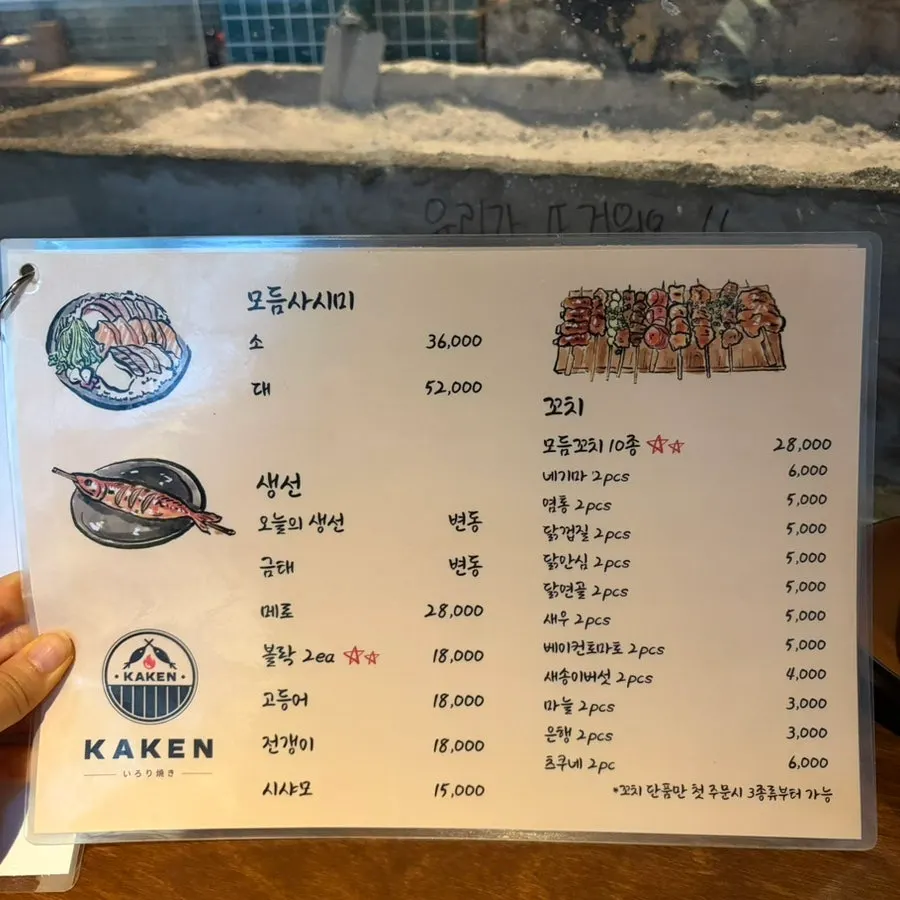 우리가 뜨거워요!!
모듬사시미
소 36,000
대 52,000
생선
오늘의 생선 변동
금태 변동
메로 28,000
볼락 2ea 18,000
고등어 18,000
전갱이 18,000
시샤모 15,000
KAKEN
KAKEN
いろり焼き
꼬치
모듬꼬치 10종 28,000
네기마 2pcs 6,000
염통 2pcs 5,000
닭껍질 2pcs 5,000
닭안심 2pcs 5,000
닭연골 2pcs 5,000
새우 2pcs 5,000
베이컨토마토 2pcs 5,000
새송이버섯 2pcs 4,000
마늘 2pcs 3,000
은행 2pcs 3,000
츠쿠네 2pc 6,000
*꼬치 단품만 첫 주문시 3종류부터 가능